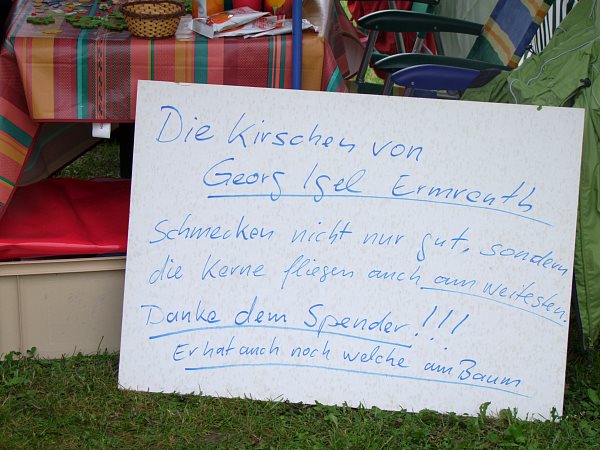 Die Kirschen von
Georg Igel Ermreuth
Schmecken nicht nur gut, sondern
die Kerne fliegen auch am weitesten.
Danke dem Spender!!!
Er hat auch noch welche am Baum